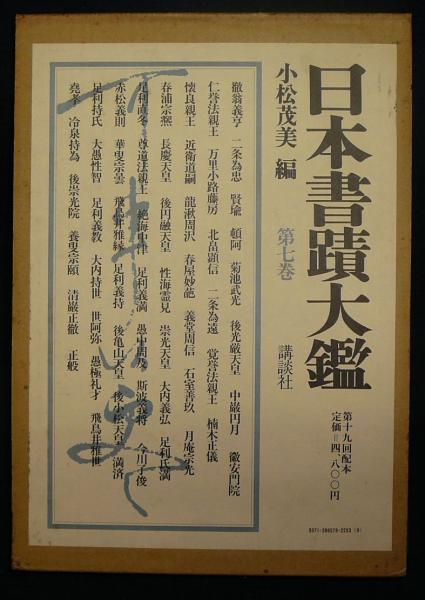 日本書蹟大鑑
小松茂美 編
第七巻
講談社
第十九回配本
定価＝四、八〇〇円
徹翁義亨 二条為忠 賢瑜 頓阿 菊池武光 後光厳天皇 中巌円月 徽安門院
仁誉法親王 万里小路藤房 北畠顕信 二条為遠 覚誉法親王 楠木正儀
懐良親王 近衛道嗣 龍湫周沢 春屋妙葩 義堂周信 石室善玖 月庵宗光
春浦宗熈 長慶天皇 後円融天皇 性海霊見 崇光天皇 大内義弘 足利氏満
足利直冬 尊道法親王 絶海中津 足利義満 愚中周及 斯波義将 今川了俊
赤松義則 華叟宗曇 飛鳥井雅縁 足利義持 後亀山天皇 後小松天皇 満済
足利持氏 大愚性智 足利義教 大内持世 世阿弥 愚極礼才 飛鳥井雅世
堯孝 冷泉持為 後崇光院 養叟宗頤 清巌正徹 正般